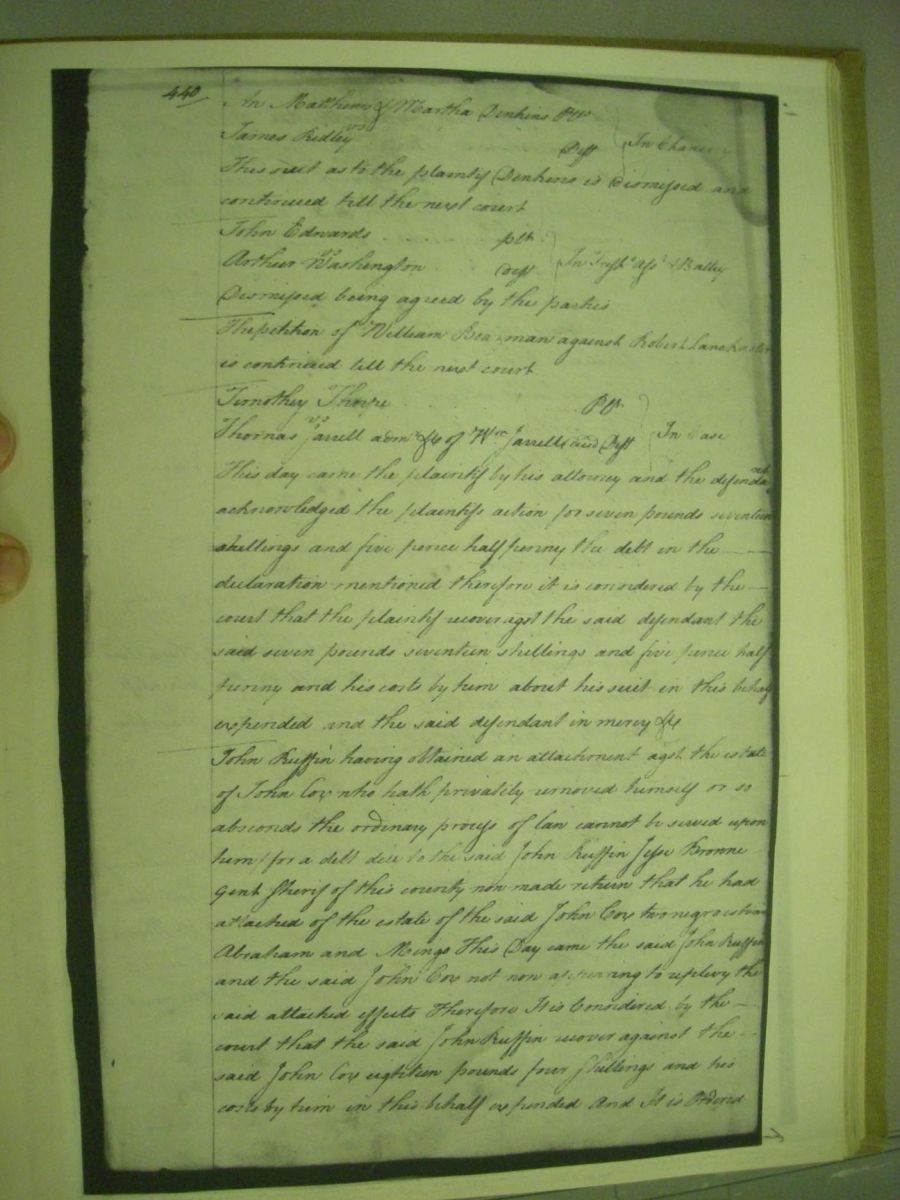 440
An Matthews & Martha Jenkins Plts
vs
James Ridley Deft In Chance
This suit as to the plaintif Jenkins is Dismissed and
continued till the next court
John Edwards plt
vs
Arthur Washington Deft In Tresps Asst & Battry
Dismissed being agreed by the parties
The petition of William man against Robert Lanchaster
is continued till the next court
Timothey Thorpe Plt
vs
Thomas Jarrell adm &c of Wm Jarrell decd Deft In Case
This day came the plaintif by his attorney and the defendant
acknowledged the plaintifs action for seven pounds seventeen
shillings and five pence half penny the debt in the
declaration mentioned therefore it is considered by the
court that the plaintif recover agst the said defendant the
said seven pounds seventeen shillings and five pence half
penny and his costs by him about his suit in this behalf
expended and the said defendant in mercy &c
John Ruffin having obtained an attachment agst the estate
of John Cox who hath privately removed himself or so
absconds the ordinary process of law cannot be served upon
him for a debt due to the said John Ruffin Jesse Browne
Gent Sherif of this county now made return that he had
attached of the estate of the said John Cox two negroes
Abraham and Mingo This Day came the said John Ruffin
and the said John Cox not now appearing to replevy the
said attached effects Therefore It is Considered by the
court that the said John Ruffin recover against the
said John Cox eighteen pounds four shillings and his
costs by him in this behalf expended And It is Ordered